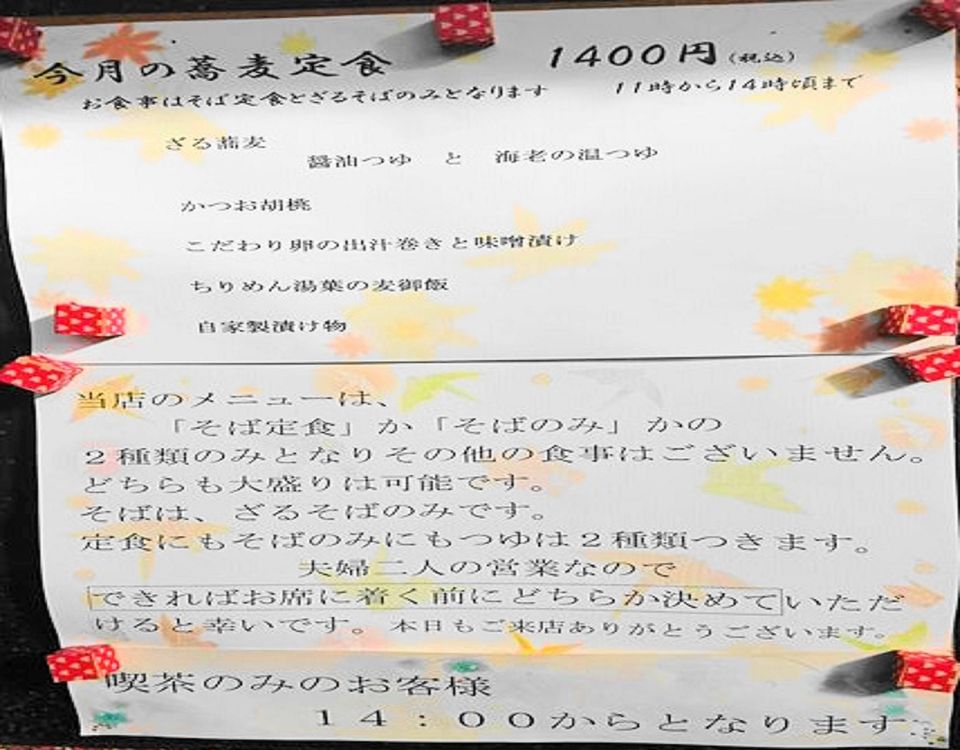 今月の蕎麦定食 1400円(税込)
お食事はそば定食とざるそばのみとなります 11時から14時頃まで
ざる蕎麦
醤油つゆ と 海老の温つゆ
かつお胡桃
こだわり卵の出汁巻きと味噌漬け
ちりめん湯葉の麦御飯
自家製漬け物
当店のメニューは、
「そば定食」か「そばのみ」かの
2種類のみとなりその他の食事はございません。
どちらも大盛りは可能です。
そばは、ざるそばのみです。
定食にもそばのみにもつゆは2種類つきます。
夫婦二人の営業なので
できればお席に着く前にどちらか決めていただ
けると幸いです。本日もご来店ありがとうございます。
喫茶のみのお客様
14:00からとなります。